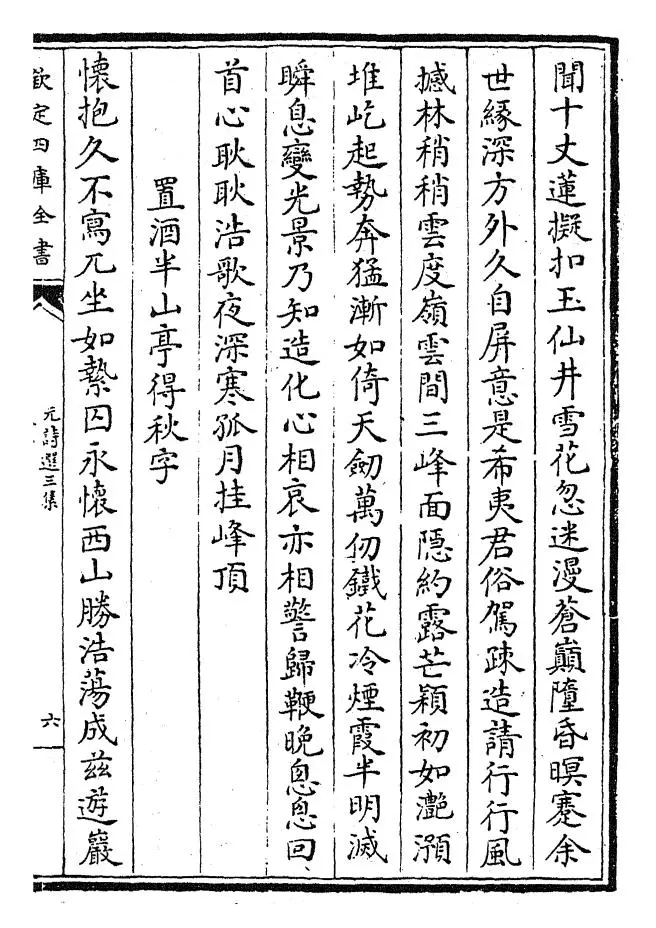 聞十丈蓮擬扣玉仙井雪花忽迷漫蒼巔墮昏暝蹇余
世緣深方外久自屏意是希夷君俗駕疎造請行行風
撼林稍稍雲度嶺雲間三峰面隱約露芒穎初如灔澦
堆屹起勢奔猛漸如倚天劒萬仞鐵花冷煙霞半明滅
瞬息變光景乃知造化心相哀亦相警歸鞭晚怱怱回
首心耿耿浩歌夜深寒孤月挂峰頂
置酒半山亭得秋字
懷抱久不寫兀坐如縶囚永懷西山勝浩蕩成兹遊巖
欽定四庫全書
元詩選三集
六